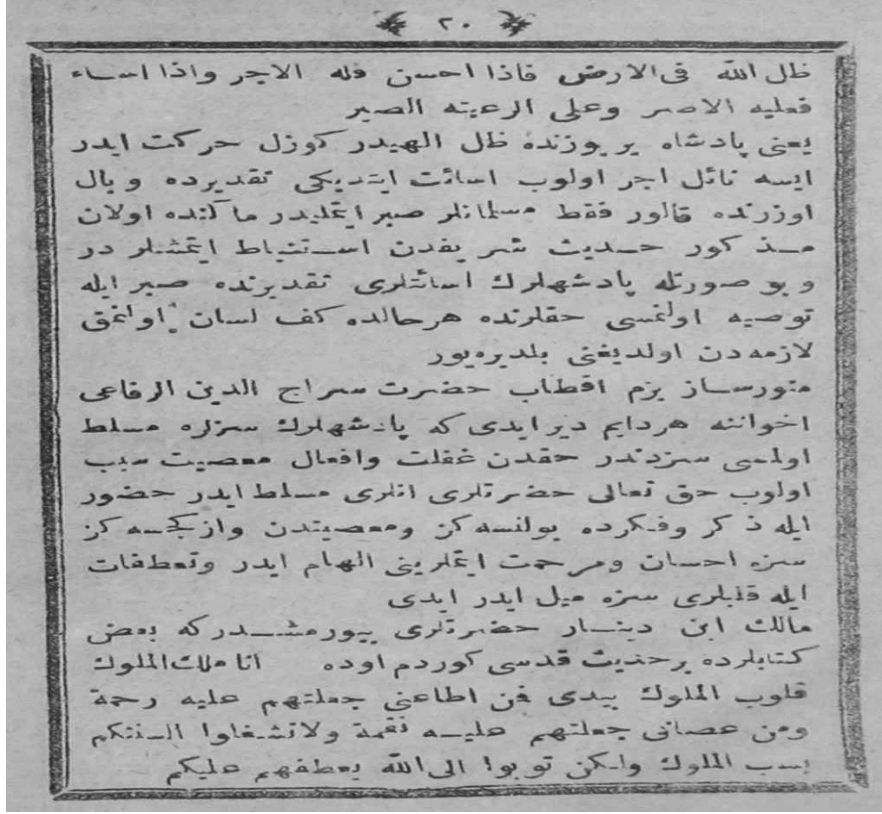 ٢٠
ظل الله فى الارض فاذا احسن فله الاجر واذا اساء
فعليه الاصر وعلى الرعيته الصبر
يعنى پادشاه ير يوزنده ظل الهيدر كوزل حركت ايدر
ايسه نائل اجر اولوب اسائت ايتديكى تقديرده وبال
اوزرنده قالور فقط مسلمانلر صبر ايتمليدر مآلنده اولان
مذكور حديث شريفدن استنباط ايتمشلر در
وبو صورتله پادشهلرك اسائتلرى تقديرنده صبر ايله
توصيه اولنمسى حقلرنده هرحالده كف لسان اولنمق
لازمه دن اولديغنى بلديره يور
بزم اقطاب حضرت سراج الدين الرفاعى
اخواننه هردايم دير ايدى كه پادشهلرك سزلره مسلط
اولمسى سزدندر حقدن غفلت وافعال معصيت سبب
اولوب حق تعالى حضرتلرى انلرى مسلط ايدر حضور
ايله ذكر وفكرده بولنسه كز ومعصيتدن وازكچسه كز
سزه احسان ومرحمت ايتملرينى الهام ايدر وتعطفات
ايله قلبلرى سزه ميل ايدر ايدى
مالك ابن دينار حضرتلرى بيورمشدركه بعض
كتابلرده برحديث قدسى كوردم اوده انا ملك الملوك
قلوب الملوك بيدى فمن اطاعنى جعلتهم عليه رحمة
ومن عصانى جعلتهم عليه نقمة ولاتشغلوا السنتكم
بسب الملوك ولكن توبوا الى الله يعطفهم عليكم